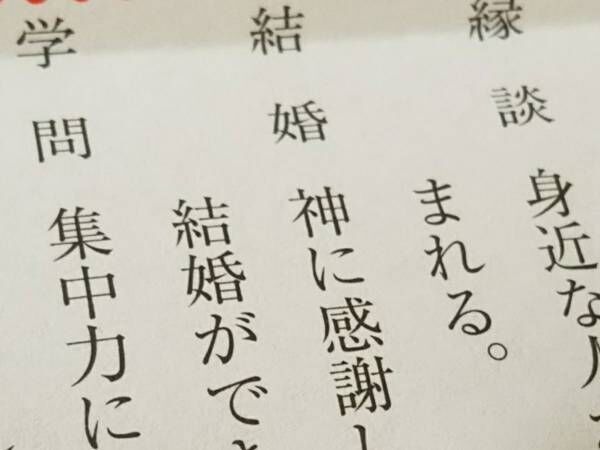 縁談 身近な
まれる。
結婚 神に感謝
結婚がで
学問 集中力に